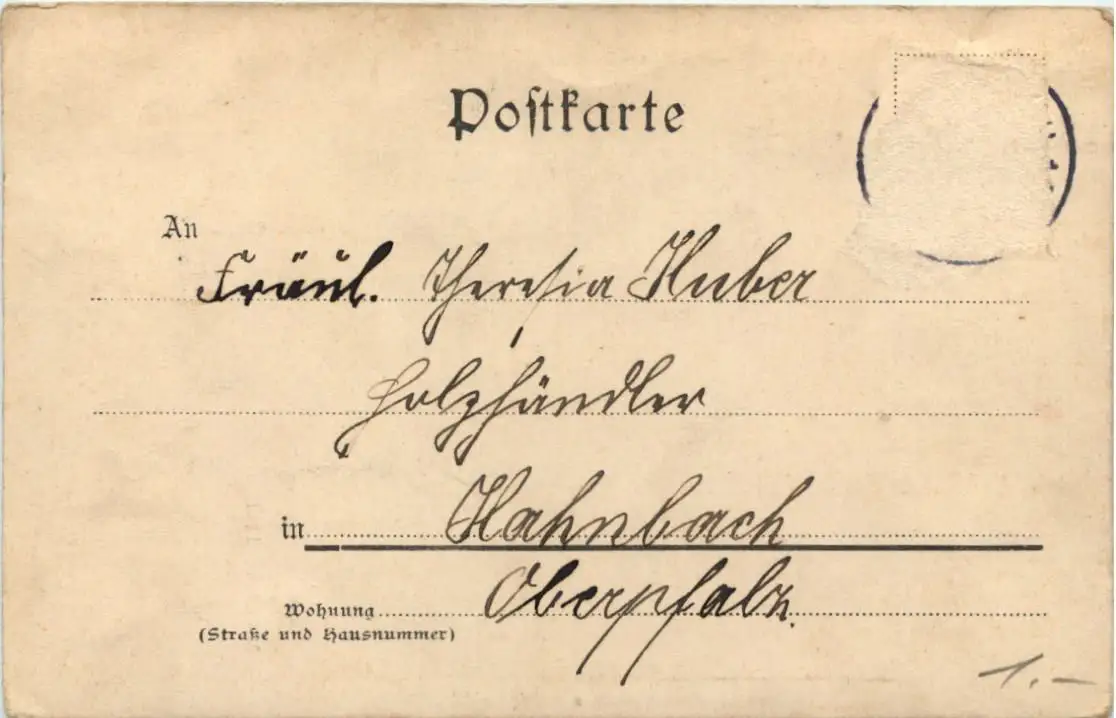 Postkarte
An
Fräul. Theresia Huber
Holzhändler
in Hahnbach
Wohnung Oberpfalz.
(Straße und Hausnummer)
1.-